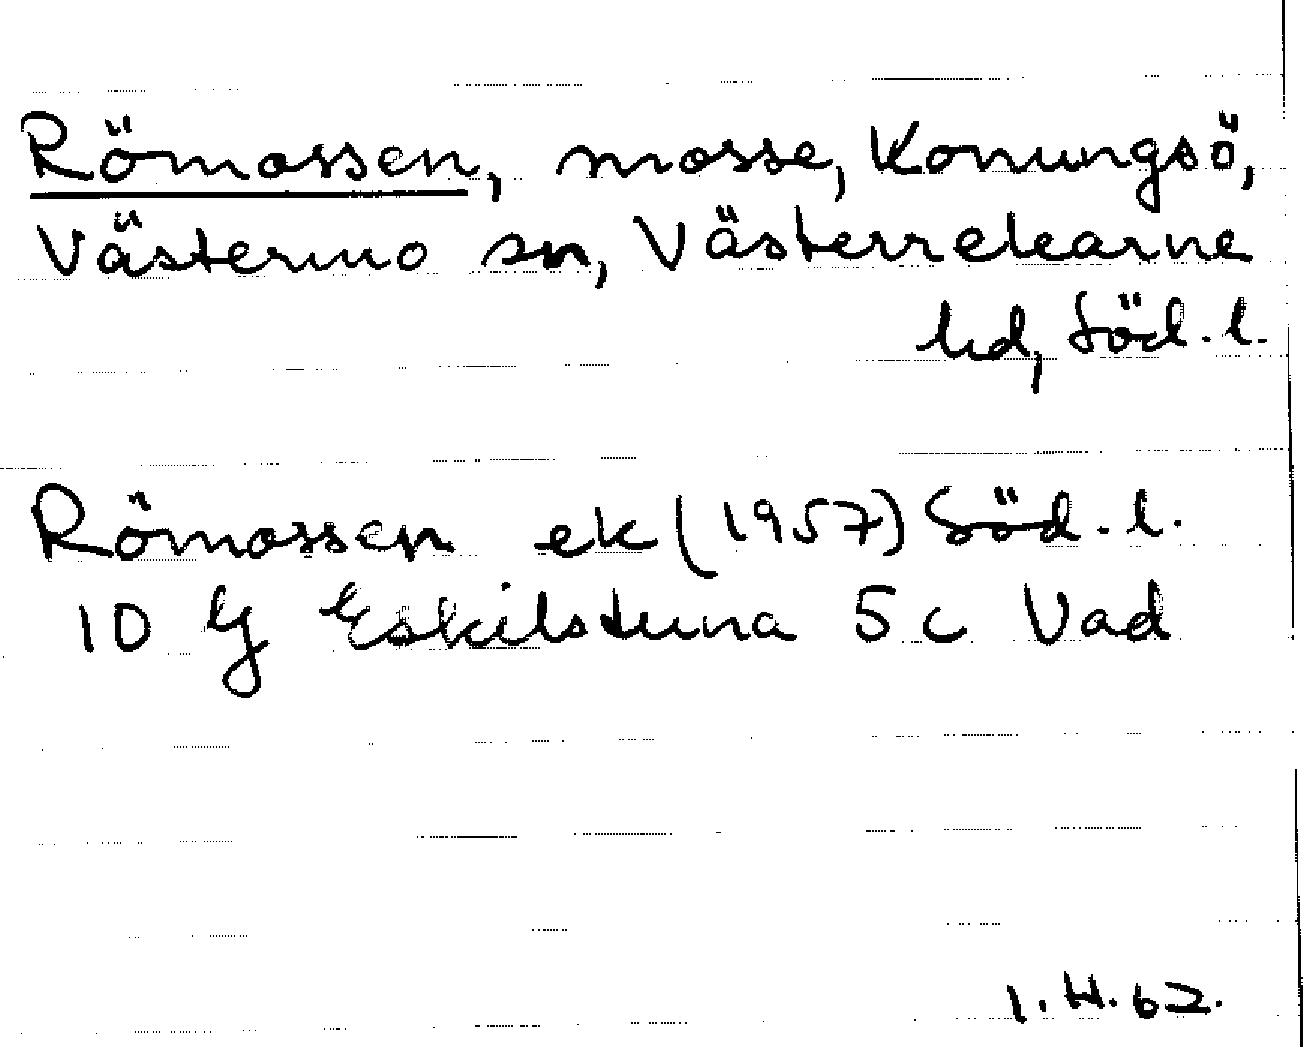 Römossen, mosse, Konungsö,
Västermo sn, Västerrekarne
hd, Söd. l.
Römossen ek (1957) Söd. l.
10 G Eskilstuna 5 c Vad
I. H. 62.